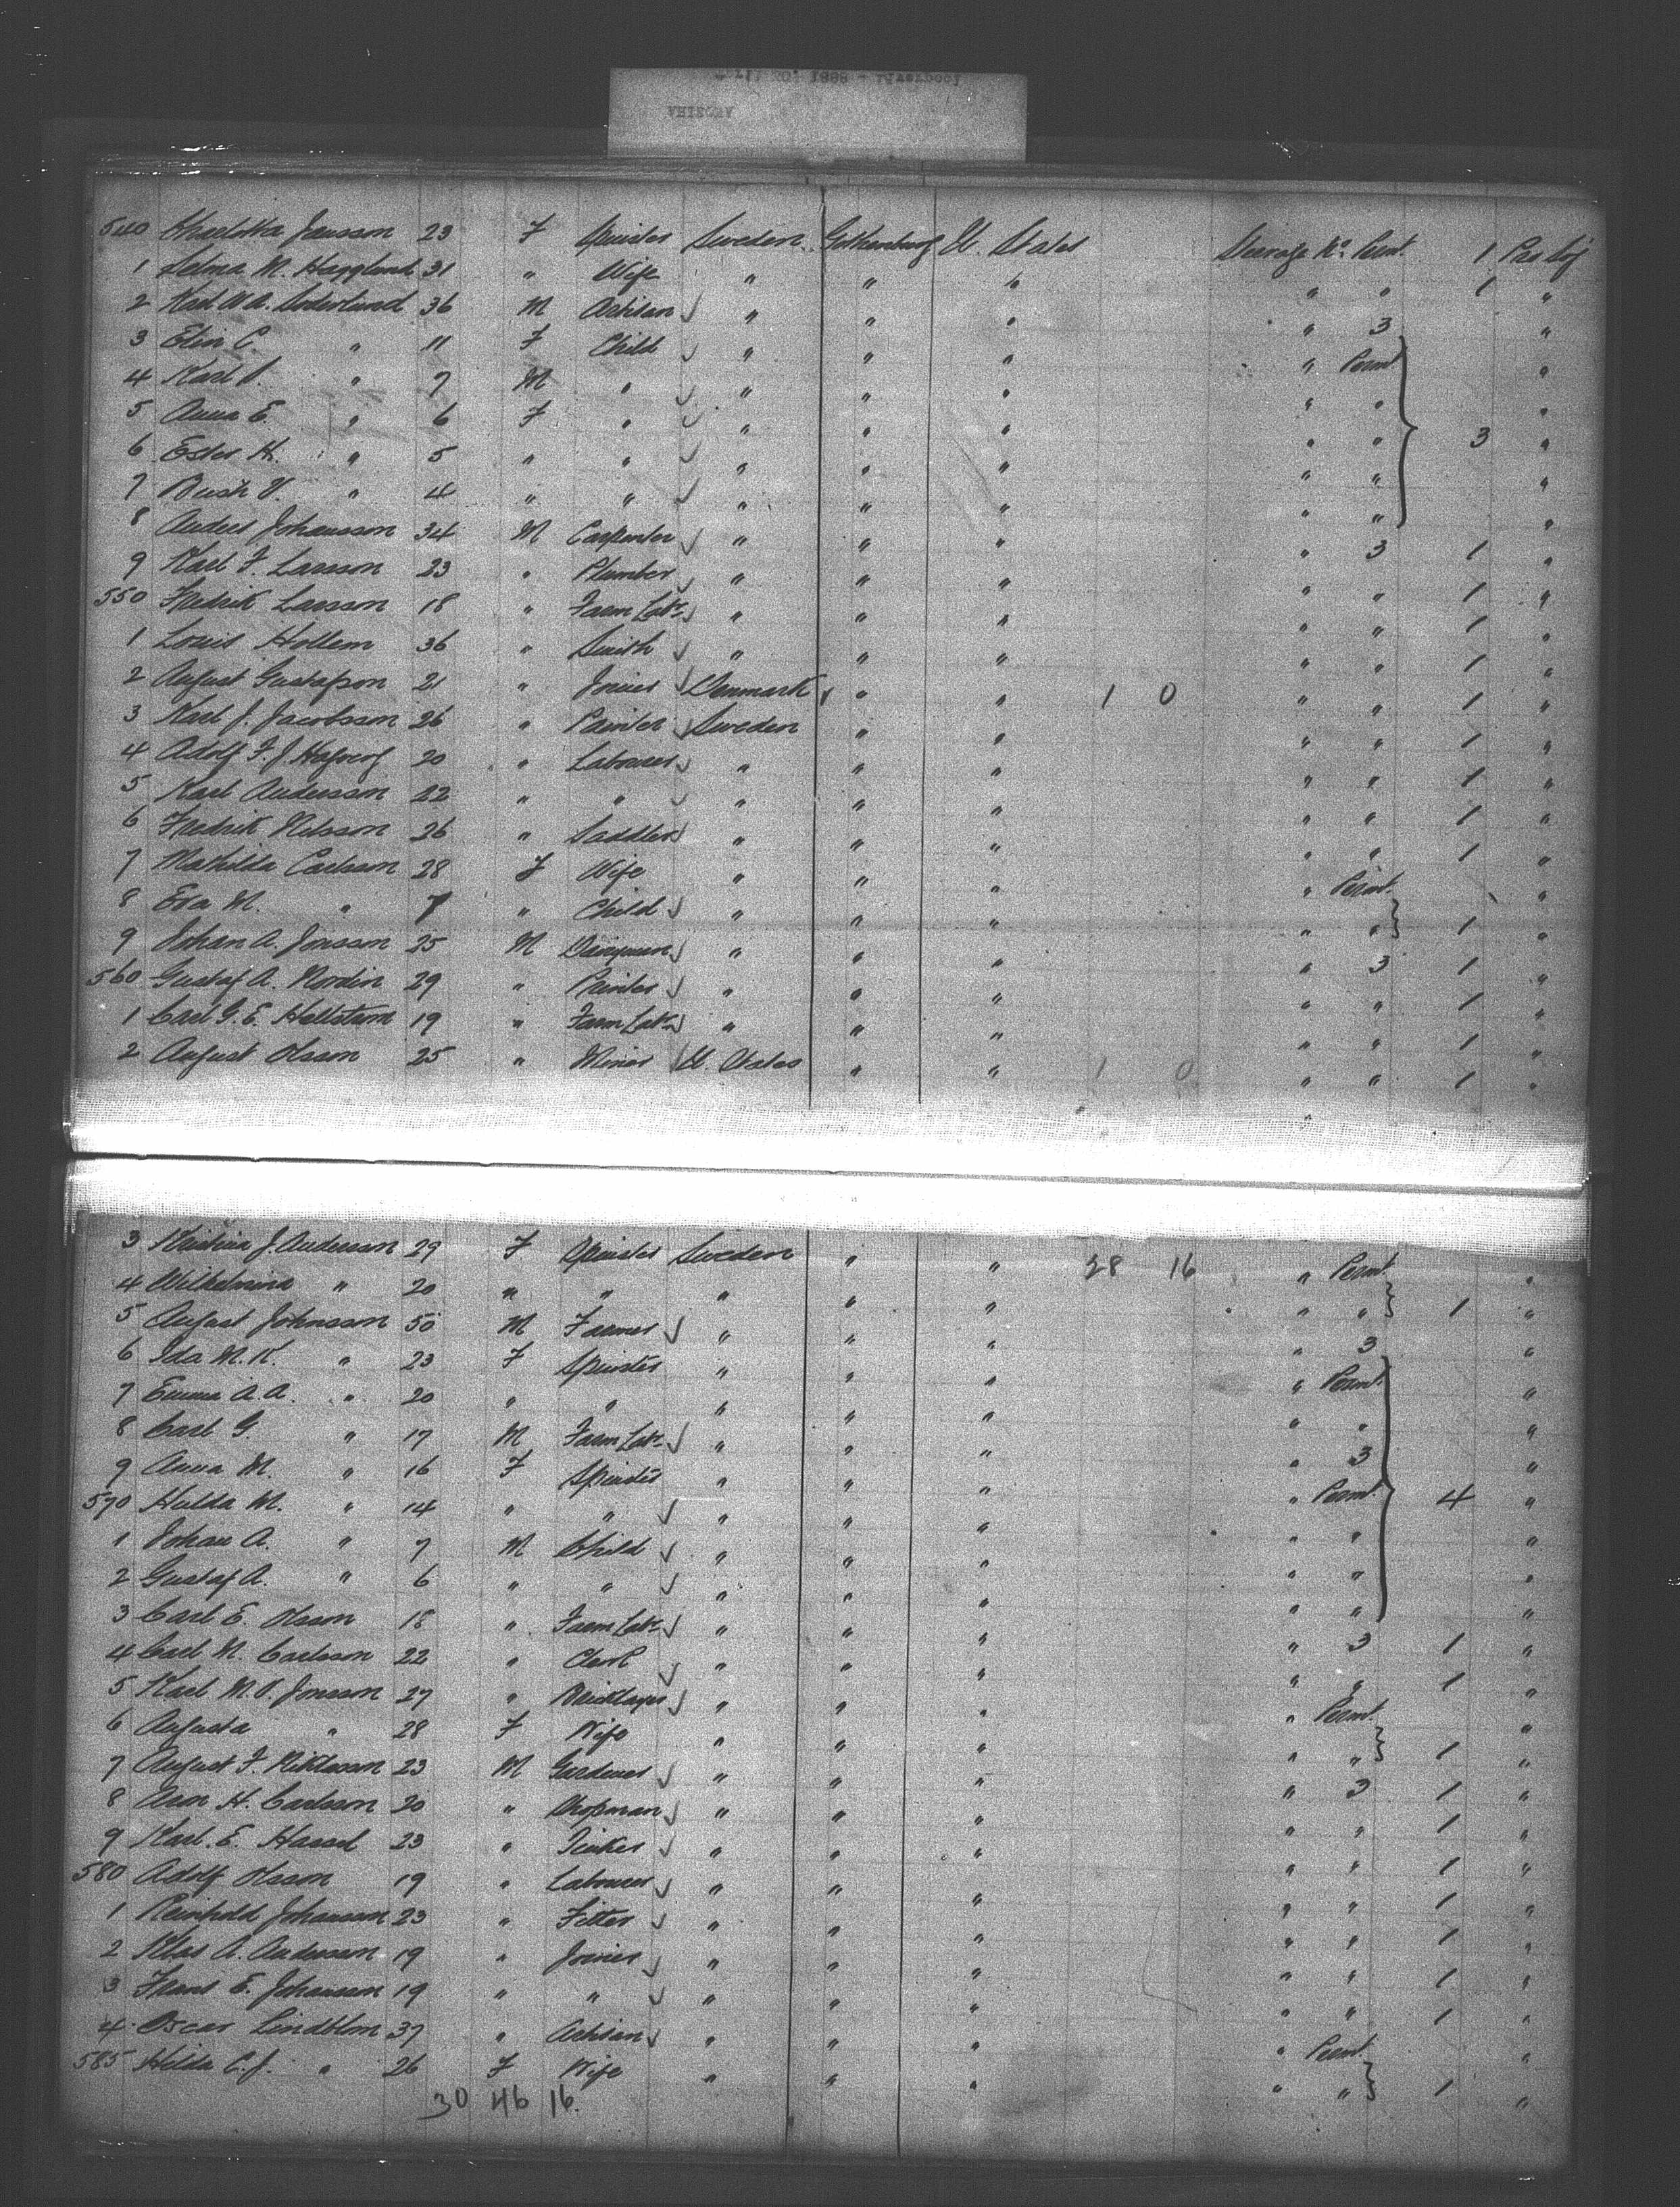 540 Charlotta Jansson 23 F Spinster Sweden Gothenburg U. States Steerage No. Permt. 1 Pas Lof
1 Selma M. Hagglund 31 " Wife " " " " " 1 "
2 Karl A. Soderlund 36 M Artisan " " " " 3 "
3 Elin C. " 11 F Child " " " " Permt "
4 Karl A. " 7 M " " " " " " "
5 Anna E. " 6 F " " " " " " 3 "
6 Ester H. " 5 " " " " " " " "
7 V. " 4 " " " " " " " "
8 Anders Johansson 34 M Carpenter " " " " 3 1 "
9 Karl F. Larsson 23 " Plumber " " " " " 1 "
550 Fredrik Larsson 18 " Farm Labr " " " " " 1 "
1 Louis Hollem 36 " Smith " " " " " 1 "
2 August Gustafson 21 " Joiner Denmark " " 1 0 " " 1 "
3 Karl J. Jacobsson 26 " Painter Sweden " " " " 1 "
4 Adolf F. J. 20 " Labourer " " " " " 1 "
5 Karl Andersson 22 " " " " " " " 1 "
6 Fredrik Nilsson 26 " Saddler " " " " " 1 "
7 Mathilda Carlsson 28 F Wife " " " " Permt. "
8 Eva M. " 7 " Child " " " " " 1 "
9 Johan A. Jonsson 25 M Dairyman " " " " 3 1 "
560 Gustaf A. Nordin 29 " Printer " " " " " 1 "
1 Carl G. E. Hellstrom 19 " Farm Labr " " " " " 1 "
2 August Olsson 25 " Miner U. States " " 1 0 " " 1 "
3 Kristina J. Andersson 29 F Spinster Sweden " " 28 16 " Permt. "
4 Wilhelmina " 20 " " " " " " " 1 "
5 August Johnsson 50 M Farmer " " " " 3 "
6 Ida M. K. " 23 F Spinster " " " " Permt. "
7 Emma A. A. " 20 " " " " " " " "
8 Carl G. " 17 M Farm Labr " " " " 3 "
9 Anna M. " 16 F Spinster " " " " Permt. 4 "
570 Hulda M. " 14 " " " " " " " "
1 Johan A. " 7 M Child " " " " " "
2 Gustaf A. " 6 " " " " " " " "
3 Carl E. Olsson 18 " Farm Labr " " " " 3 1 "
4 Carl M. Carlsson 22 " Clerk " " " " " 1 "
5 Karl M. O. Jonsson 27 " Bricklayer " " " " Permt. "
6 Augusta " 28 F Wife " " " " " 1 "
7 August F. Niklasson 23 M Gardener " " " " 3 1 "
8 Aron H. Carlsson 20 " Shopman " " " " " 1 "
9 Karl. E. Hassel 23 " Tinker " " " " " 1 "
580 Adolf Olsson 19 " Labourer " " " " " 1 "
1 Reinhold Johansson 23 " Fitter " " " " " 1 "
2 Klas A. Andersson 19 " Joiner " " " " " 1 "
3 Frans E. Johansson 19 " " " " " " " 1 "
4 Oscar Lindblom 37 " Artisan " " " " Permt. "
585 Hilda C. J. " 26 F Wife " " " " " 1 "
30 46 16